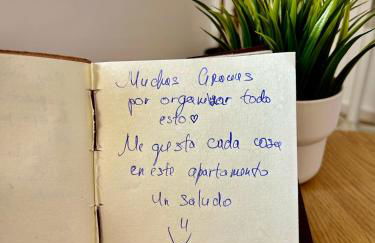 Muchas Gracias
por organizar todo
esto ♡
Me gusta cada cosa
en este apartamento
Un saludo